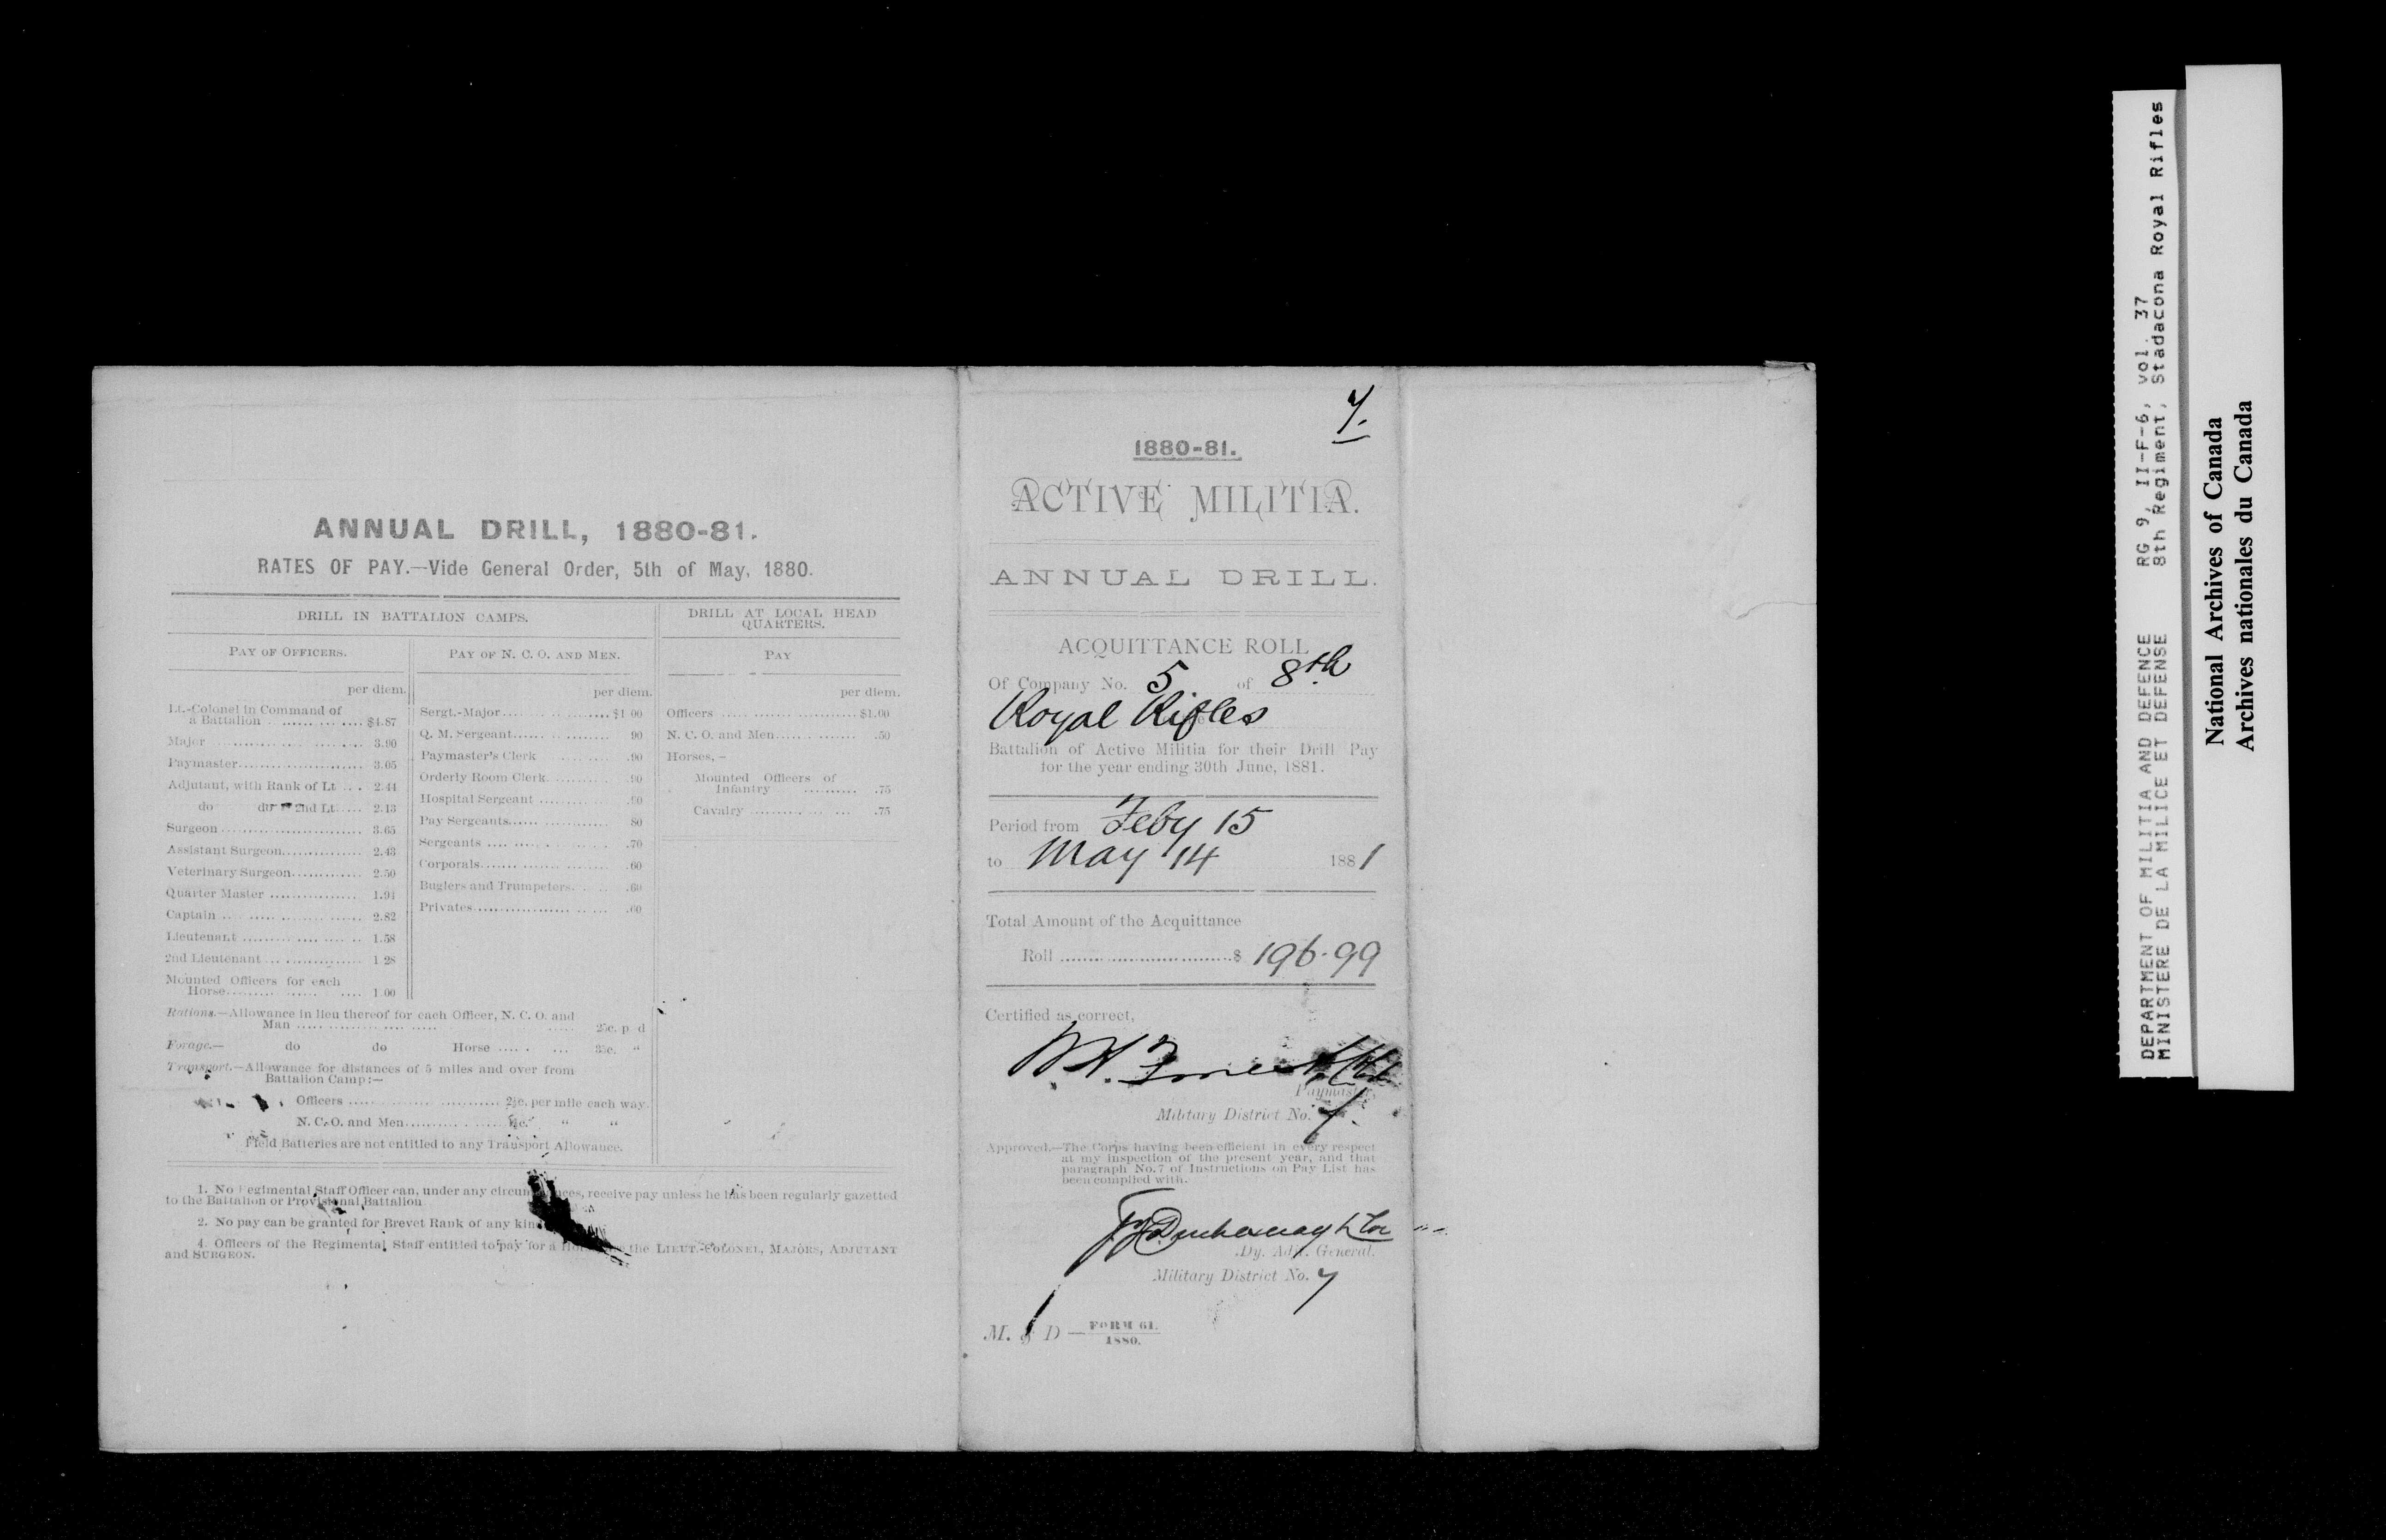 ANNUAL DRILL, 1880-81.
RATES OF PAY.—Vide General Order, 5th of May, 1880.
DRILL IN BATTALION CAMPS.
PAY OF OFFICERS.
per diem.
Lt.-Colonel in Command of
a Battalion $4.87
Major 3.90
Paymaster 3.05
Adjutant, with Rank of Lt 2.44
do do 2nd Lt 2.13
Surgeon 3.65
Assistant Surgeon 2.43
Veterinary Surgeon 2.50
Quarter Master 1.94
Captain 2.82
Lieutenant 1.58
2nd Lieutenant 1 28
Mounted Officers for each
Horse 1.00
PAY OF N. C. O. AND MEN.
per diem.
Sergt.-Major $1 00
Q. M. Sergeant 90
Paymaster's Clerk .90
Orderly Room Clerk .90
Hospital Sergeant .90
Pay Sergeants 80
Sergeants .70
Corporals .60
Buglers and Trumpeters .60
Privates
DRILL AT LOCAL HEAD
QUARTERS.
PAY
per diem.
Officers $1.00
N. C. O. and Men .50
Horses,—
Mounted Officers of
Infantry .75
Cavalry .75
Rations.—Allowance in lieu thereof for each Officer, N. C. O. and
Man p. d
Forage.— do do Horse "
Transport.—Allowance for distances of 5 miles and over from
Battalion Camp:—
Officers per mile each way.
N. C. O. and Men " "
Field Batteries are not entitled to any Transport Allowance.
1. No Regimental Staff Officer can, under any receive pay unless he has been regularly gazetted
to the Battalion or Provisional Battalion
2. No pay can be granted for Brevet Rank of any
4. Officers of the Regimental Staff entitled to pay for a the LIEUT.-COLONEL, MAJORS, ADJUTANT
and SURGEON.
7.
1880-81.
ACTIVE MILITIA.
ANNUAL DRILL.
ACQUITTANCE ROLL
Of Company No. 5 of 8th
Royal Rifles
Battalion of Active Militia for their Drill Pay
for the year ending 30th June, 1881.
Period from Feby 15
to May 14 1881
Total Amount of the Acquittance
Roll $ 196.99
Certified as correct,
W H. Forrest
Paymaster,
Military District No. 7.
Approved.—The Corps having been efficient in every respect
at my inspection of the present year, and that
paragraph No. 7 of Instructions on Pay List has
been complied with.
Dy. Adjt. General.
Military District No. 7
M. & D — FORM 61.
1880.
DEPARTMENT OF MILITIA AND DEFENCE RG 9, II-F-6, vol. 37
MINISTERE DE LA MILICE ET DEFENSE 8th Regiment, Stadacona Royal Rifles
National Archives of Canada
Archives nationales du Canada